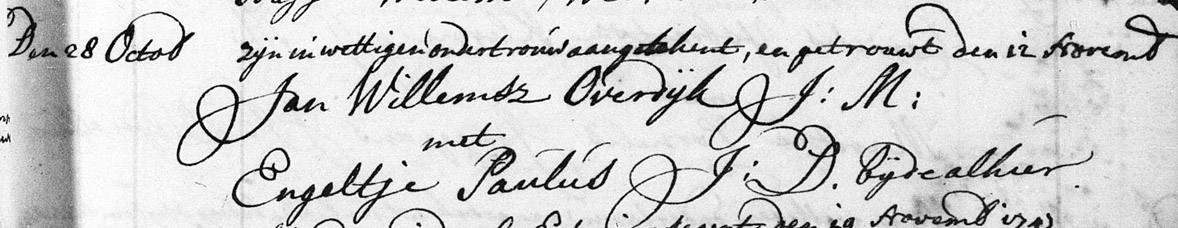 Den 28 Octob zijn in wettigen ondertrouw aangetekent, en getrouwt den 12 Novemb
Jan Willemsz Overdijk J: M:
met
Engeltje Paulus J: D. bijde alhier
den 19 Novemb